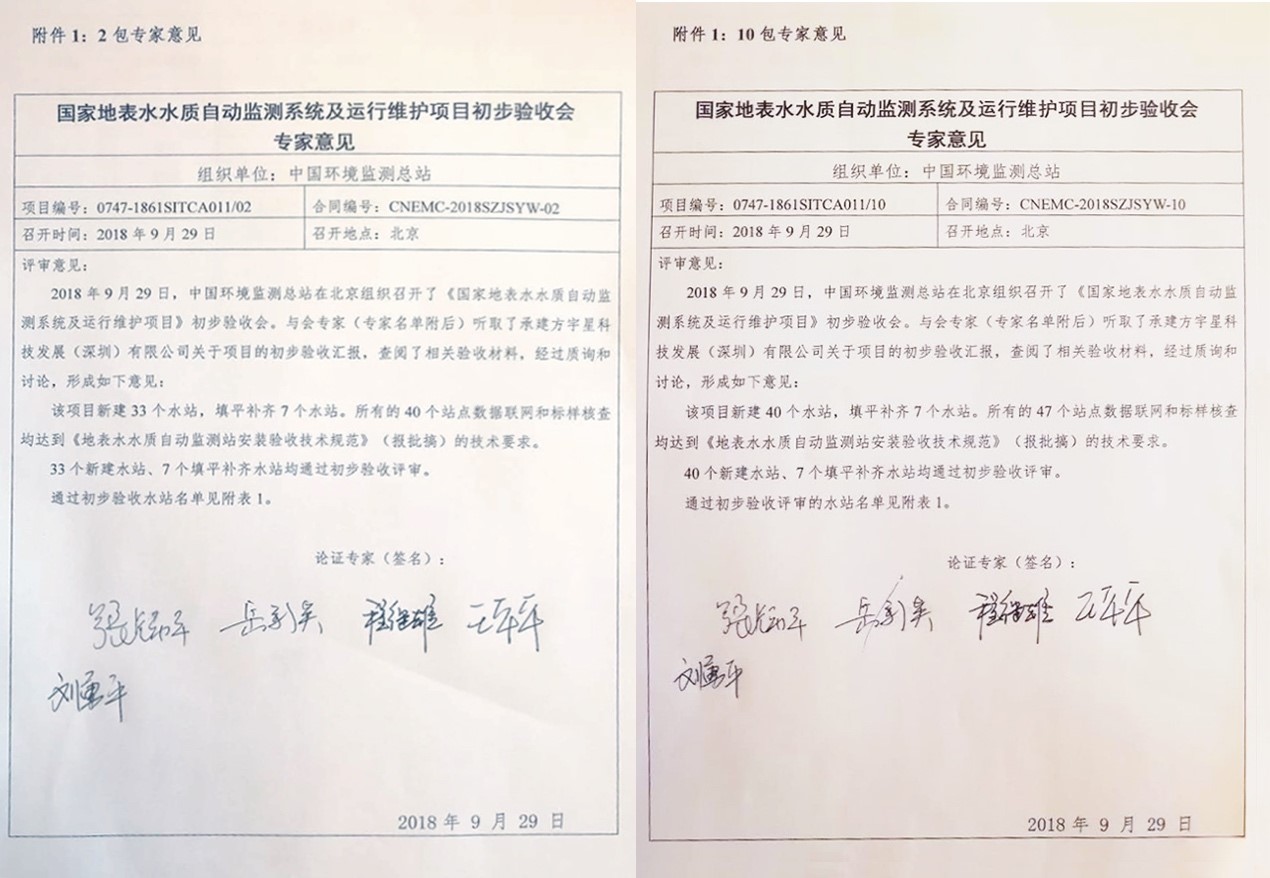 附件1：2包专家意见
国家地表水水质自动监测系统及运行维护项目初步验收会
专家意见
组织单位：中国环境监测总站
项目编号：0747-1861SITCA011/02
合同编号：CNEMC-2018SZJSYW-02
召开时间：2018年9月29日
召开地点：北京
评审意见：
2018年9月29日，中国环境监测总站在北京组织召开了《国家地表水水质自动监
测系统及运行维护项目》初步验收会。与会专家（专家名单附后）听取了承建方宇星科
技发展（深圳）有限公司关于项目的初步验收汇报，查阅了相关验收材料，经过质询和
讨论，形成如下意见：
该项目新建33个水站，填平补齐7个水站。所有的40个站点数据联网和标样核查
均达到《地表水水质自动监测站安装验收技术规范》（报批搞）的技术要求。
33个新建水站、7个填平补齐水站均通过初步验收评审。
通过初步验收水站名单见附表1。
论证专家（签名）：
刘勇平
2018年9月29日
附件1：10包专家意见
国家地表水水质自动监测系统及运行维护项目初步验收会
专家意见
组织单位：中国环境监测总站
项目编号：0747-1861SITCA011/10
合同编号：CNEMC-2018SZJSYW-10
召开时间：2018年9月29日
召开地点：北京
评审意见：
2018年9月29日，中国环境监测总站在北京组织召开了《国家地表水水质自动监
测系统及运行维护项目》初步验收会。与会专家（专家名单附后）听取了承建方宇星科
技发展（深圳）有限公司关于项目的初步验收汇报，查阅了相关验收材料，经过质询和
讨论，形成如下意见：
该项目新建40个水站，填平补齐7个水站。所有的47个站点数据联网和标样核查
均达到《地表水水质自动监测站安装验收技术规范》（报批搞）的技术要求。
40个新建水站、7个填平补齐水站均通过初步验收评审。
通过初步验收评审的水站名单见附表1。
论证专家（签名）：
刘勇平
2018年9月29日